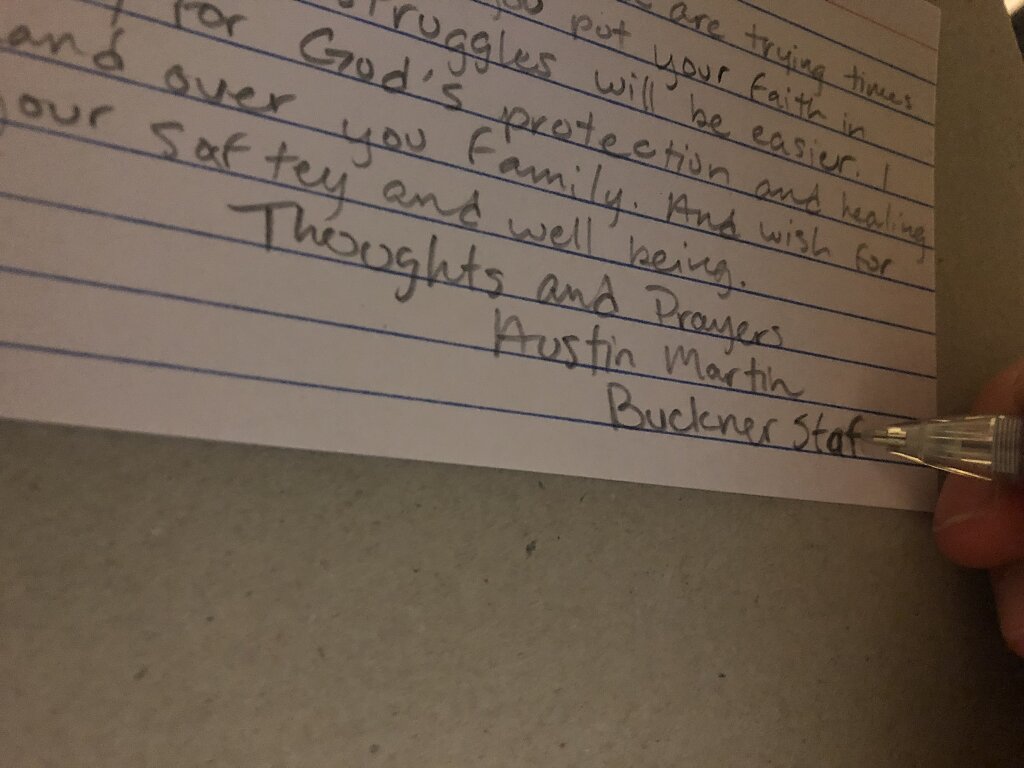 are trying times
you put your faith in
struggles will be easier. I
for God's protection and healing
and over you family. And wish for
your saftey and well being.
Thoughts and Prayers
Austin Martin
Buckner Staf